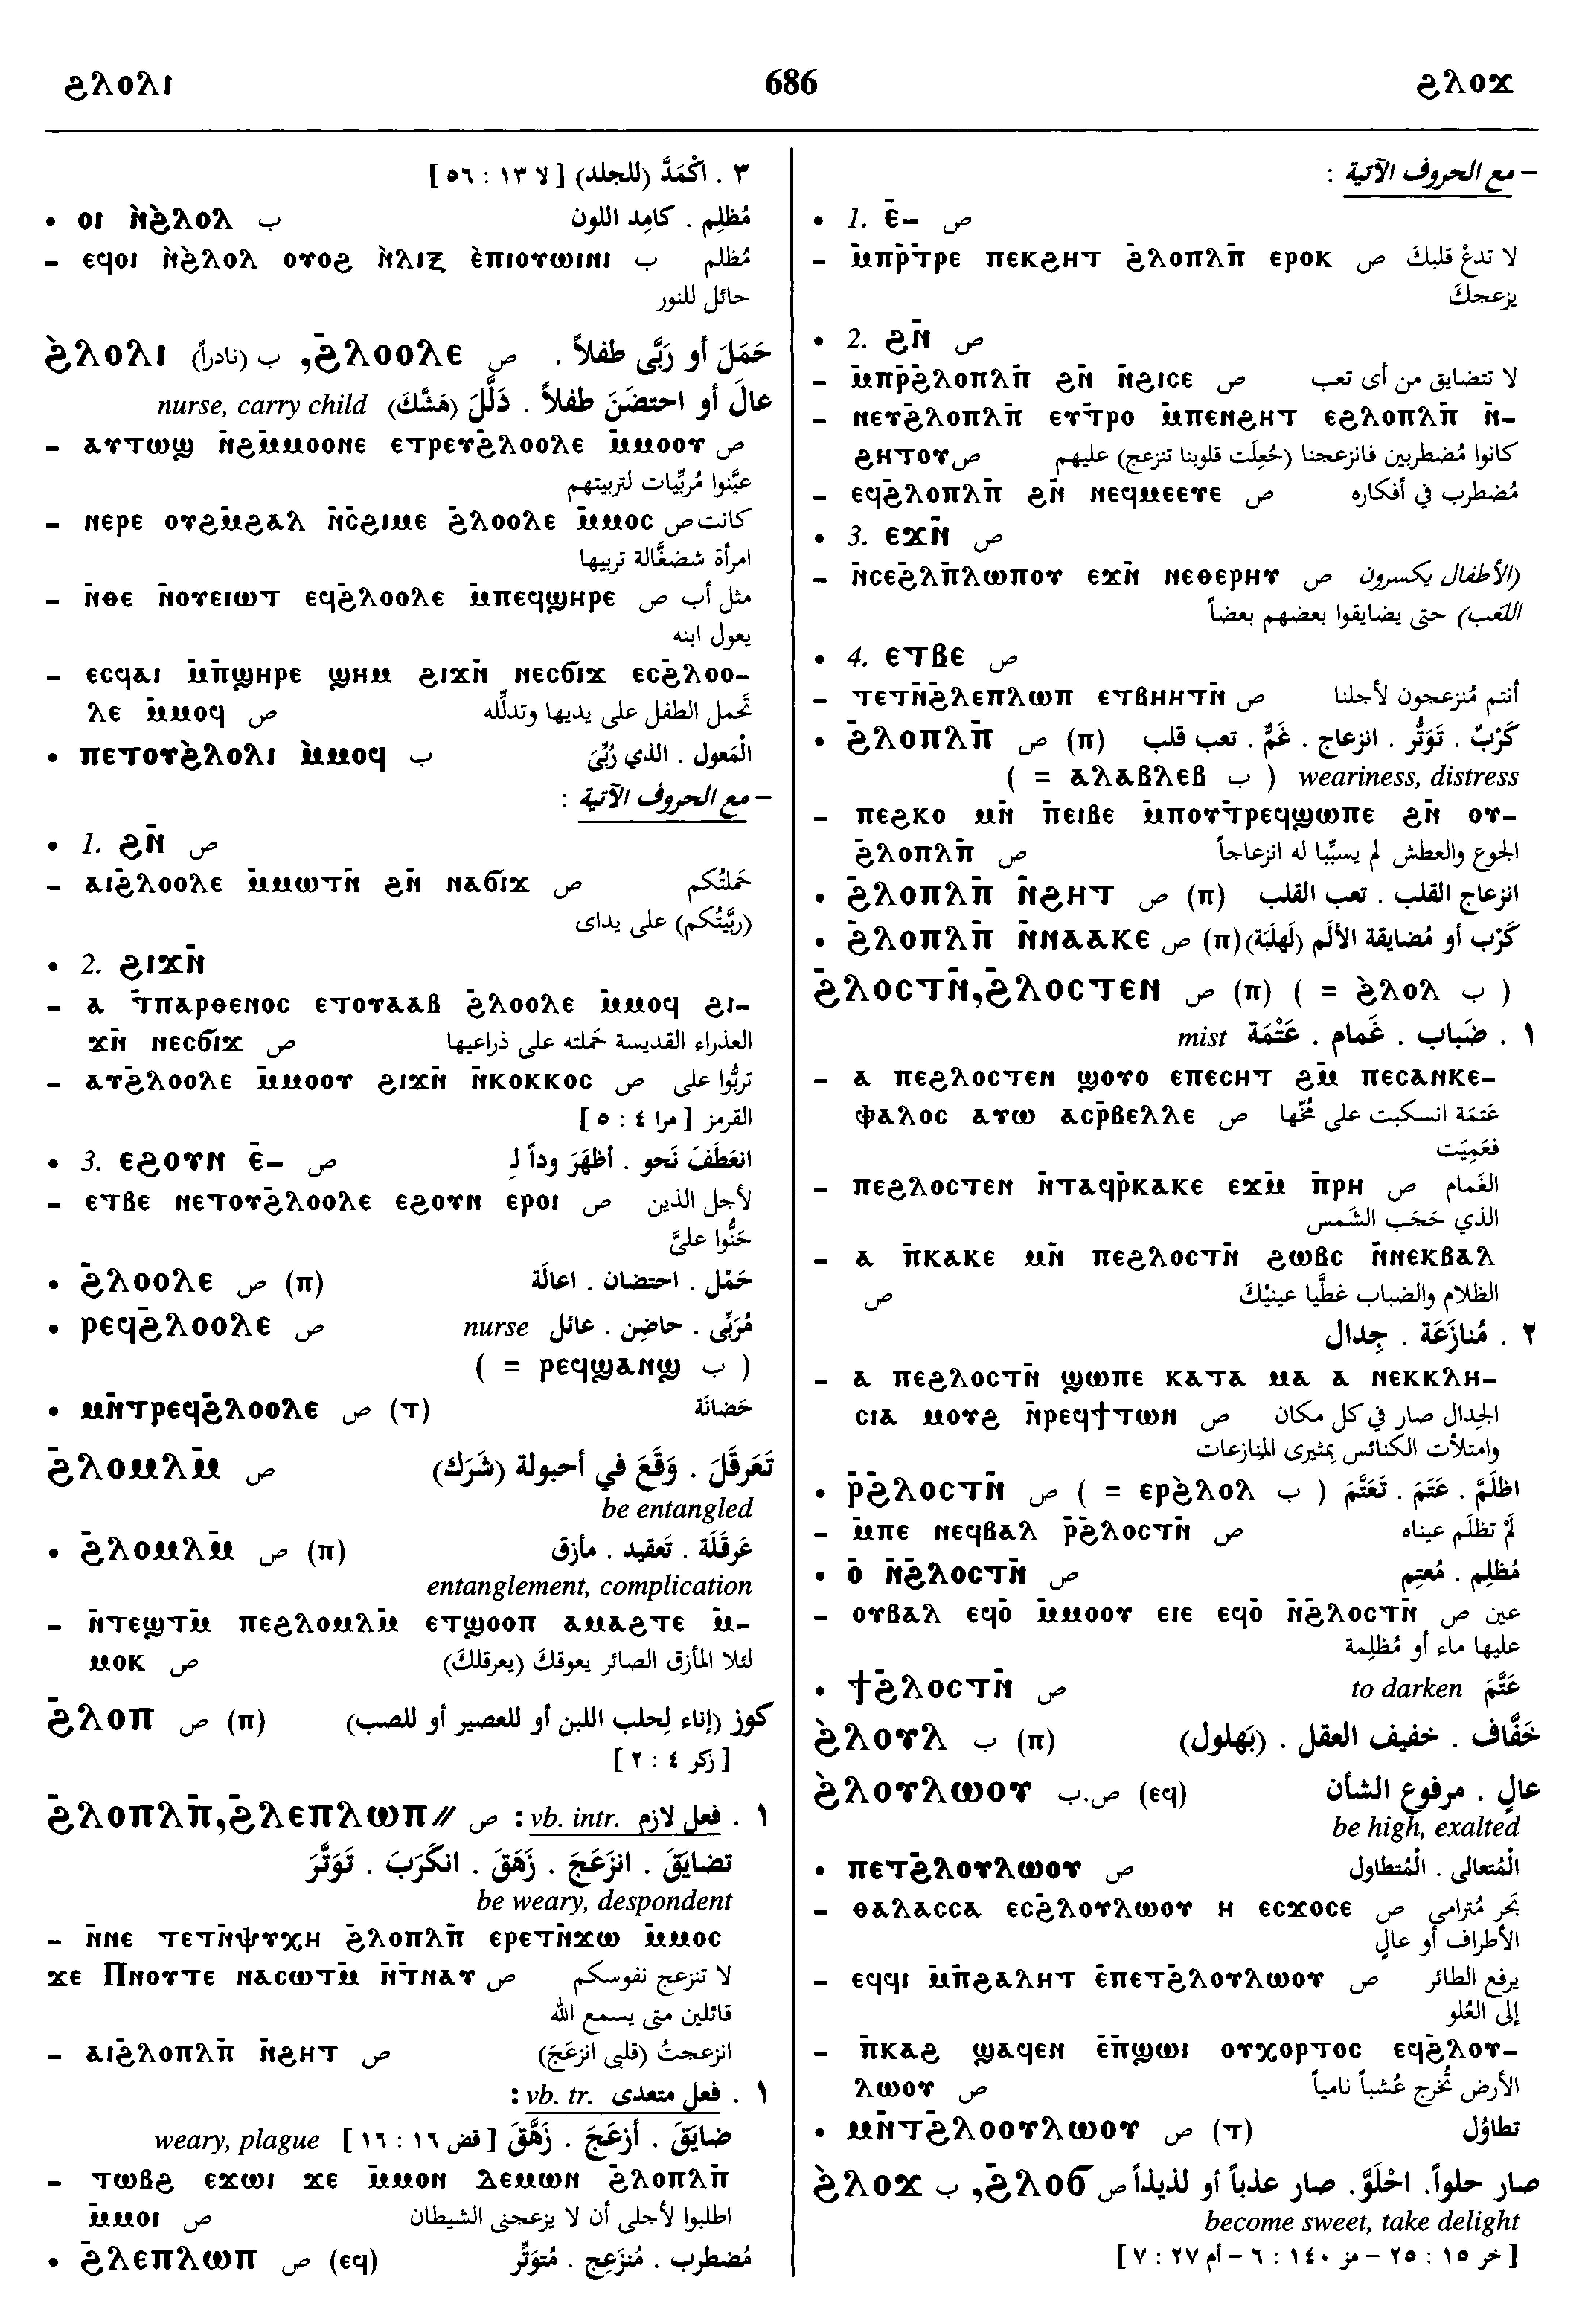 ϩⲗⲟⲗⲓ 686 ϩⲗⲟϫ
٣ . اكْمَدَّ (للجلد) [ لا ١٣ : ٥٦ ]
• ⲟⲓ ⲛ̀ϩ̀ⲗⲟⲗ ب مُظلِم . كامِد اللون
– ⲉϥⲟⲓ ⲛ̀ϩ̀ⲗⲟⲗ ⲟⲩⲟϩ ⲛ̀ⲗⲓⲝ ⲉ̀ⲡⲓⲟⲩⲱⲓⲛⲓ ب مُظلم
حائل للنور
ϩ̀ⲗⲟⲗⲓ ب (نادراً) ,ϩ̄ⲗⲟⲟⲗⲉ ص حَمَلَ أو رَبَّى طفلاً .
عالَ أو احتضَنَ طفلاً . دَلَّلَ (هَشَّكَ) nurse, carry child
– ⲁⲩⲧⲱϣ ⲛ̄ϩⲙ̄ⲙⲟⲟⲛⲉ ⲉⲧⲣⲉⲩϩ̄ⲗⲟⲟⲗⲉ ⲙ̄ⲙⲟⲟⲩ ص
عيَّنوا مُربِّيات لتربيتهم
– ⲛⲉⲣⲉ ⲟⲩϩⲙ̄ϩⲁⲗ ⲛ̄ⲥϩⲓⲙⲉ ϩ̄ⲗⲟⲟⲗⲉ ⲙ̄ⲙⲟⲥ ص كانت
امرأة شضغَّالة تربيها
– ⲛ̄ⲑⲉ ⲛ̄ⲟⲩⲉⲓⲱⲧ ⲉϥϩ̄ⲗⲟⲟⲗⲉ ⲙ̄ⲡⲉϥϣⲏⲣⲉ ص مثل أب
يعول ابنه
– ⲉⲥϥⲁⲓ ⲙ̄ⲡ̄ϣⲏⲣⲉ ϣⲏⲙ ϩⲓϫⲛ̄ ⲛⲉⲥϭⲓϫ ⲉⲥϩ̄ⲗⲟⲟ–
ⲗⲉ ⲙ̄ⲙⲟϥ ص تَحمل الطفل على يديها وتدلِّله
• ⲡⲉⲧⲟⲩϩ̀ⲗⲟⲗⲓ ⲙ̀ⲙⲟϥ ب الْمَعول . الذي رُبِّىَ
– مع الحروف الآتية :
• 1. ϩⲛ̄ ص
– ⲁⲓϩ̄ⲗⲟⲟⲗⲉ ⲙ̄ⲙⲱⲧⲛ̄ ϩⲛ̄ ⲛⲁϭⲓϫ ص حَملتُكم
(ربَّيتُكم) على يداى
• 2. ϩⲓϫⲛ̄
– ⲁ ϯⲡⲁⲣⲑⲉⲛⲟⲥ ⲉⲧⲟⲩⲁⲁⲃ ϩ̄ⲗⲟⲟⲗⲉ ⲙ̄ⲙⲟϥ ϩⲓ–
ϫⲛ̄ ⲛⲉⲥϭⲓϫ ص العذراء القديسة حَملته على ذراعيها
– ⲁⲩϩ̄ⲗⲟⲟⲗⲉ ⲙ̄ⲙⲟⲟⲩ ϩⲓϫⲛ̄ ⲛ̄ⲕⲟⲕⲕⲟⲥ ص تربُّوا على
القرمز [ مرا ٤ : ٥ ]
• 3. ⲉϩⲟⲩⲛ ⲉ̄– ص انعَطَفَ نَحو . أظهَرَ وداً لـِ
– ⲉⲧⲃⲉ ⲛⲉⲧⲟⲩϩ̄ⲗⲟⲟⲗⲉ ⲉϩⲟⲩⲛ ⲉⲣⲟⲓ ص لأجل الذين
حَنُّوا علىَّ
• ϩ̄ⲗⲟⲟⲗⲉ ص (ⲡ) حَمْل . احتضان . اعالَة
• ⲣⲉϥϩ̄ⲗⲟⲟⲗⲉ ص مُرَبِّى . حاضِن . عائل nurse
( = ⲣⲉϥϣⲁⲛϣ ب )
• ⲙⲛ̄ⲧⲣⲉϥϩ̄ⲗⲟⲟⲗⲉ ص (ⲧ) حَضانَة
ϩ̄ⲗⲟⲙⲗⲙ̄ ص تَعَرقَلَ . وَقَعَ في أحبولة (شَرَك)
be entangled
• ϩ̄ⲗⲟⲙⲗⲙ̄ ص (ⲡ) عَرقَلَة . تَعقيد . مأزق
entanglement, complication
– ⲛ̄ⲧⲉϣⲧⲙ̄ ⲡⲉϩⲗⲟⲙⲗⲙ̄ ⲉⲧϣⲟⲟⲡ ⲁⲙⲁϩⲧⲉ ⲙ̄–
ⲙⲟⲕ ص لئلا المأزق الصائر يعوقكَ (يعرقلكَ)
ϩ̄ⲗⲟⲡ ص (ⲡ) كوز (إناء لِحلب اللبن أو للعصير أو للصب)
[ زكر ٤ : ٢ ]
ϩ̄ⲗⲟⲡⲗⲡ̄,ϩ̄ⲗⲉⲡⲗⲱⲡ// ص ١ . فعل لازم vb. intr. :
تضايَقَ . انزَعَجَ . زَهَقَ . انكَرَبَ . تَوَتَّرَ
be weary, despondent
– ⲛ̄ⲛⲉ ⲧⲉⲧⲛ̄ⲯⲩⲭⲏ ϩ̄ⲗⲟⲡⲗⲡ̄ ⲉⲣⲉⲧⲛ̄ϫⲱ ⲙ̄ⲙⲟⲥ
ϫⲉ Ⲡⲛⲟⲩⲧⲉ ⲛⲁⲥⲱⲧⲙ̄ ⲛ̄ⲧⲛⲁⲩ ص لا تنزعج نفوسكم
قائلين متى يسمع الله
– ⲁⲓϩ̄ⲗⲟⲡⲗⲡ̄ ⲛ̄ϩⲏⲧ ص انزعجتُ (قلبى انزعَجَ)
١ . فعل متعدى vb. tr. :
ضايَقَ . أزعَجَ . زَهَّقَ [ قض ١٦ : ١٦ ] weary, plague
– ⲧⲱⲃϩ ⲉϫⲱⲓ ϫⲉ ⲙ̄ⲙⲟⲛ ⲇⲉⲙⲱⲛ ϩ̄ⲗⲟⲡⲗⲡ̄
ⲙ̄ⲙⲟⲓ ص اطلبوا لأجلى أن لا يزعجنى الشيطان
• ϩ̄ⲗⲉⲡⲗⲱⲡ ص (ⲉϥ) مُضطرب . مُنزَعِج . مُتوَتِّر
– مع الحروف الآتية :
• 1. ⲉ̄– ص
– ⲙ̄ⲡⲣ̄ⲧⲣⲉ ⲡⲉⲕϩⲏⲧ ϩ̄ⲗⲟⲡⲗⲡ̄ ⲉⲣⲟⲕ ص لا تدعْ قلبكَ
يزعجكَ
• 2. ϩⲛ̄ ص
– ⲙ̄ⲡⲣ̄ϩ̄ⲗⲟⲡⲗⲡ̄ ϩⲛ̄ ⲛ̄ϩⲓⲥⲉ ص لا تتضايق من أى تعب
– ⲛⲉⲩϩ̄ⲗⲟⲡⲗⲡ̄ ⲉⲩⲧⲣⲟ ⲙ̄ⲡⲉⲛϩⲏⲧ ⲉϩⲗⲟⲡⲗⲡ̄ ⲛ̄–
ϩⲏⲧⲟⲩ ص كانوا مُضطربين فانزعجنا (جُعِلَت قلوبنا تنزعج) عليهم
– ⲉϥϩ̄ⲗⲟⲡⲗⲡ̄ ϩⲛ̄ ⲛⲉϥⲙⲉⲉⲩⲉ ص مُضطرب في أفكاره
• 3. ⲉϫⲛ̄ ص
– ⲛ̄ⲥⲉϩ̄ⲗⲡ̄ⲗⲱⲡⲟⲩ ⲉϫⲛ̄ ⲛⲉⲑⲉⲣⲏⲩ ص (الأطفال يكسرون
اللعَب) حتى يضايقوا بعضهم بعضاً
• 4. ⲉⲧⲃⲉ ص
– ⲧⲉⲧⲛ̄ϩ̄ⲗⲉⲡⲗⲱⲡ ⲉⲧⲃⲏⲏⲧⲛ̄ ص أنتم مُنزعجون لأجلنا
• ϩ̄ⲗⲟⲡⲗⲡ̄ ص (ⲡ) كَرْبٌ . تَوَتُّر . انزعاج . غَمٌّ . تعب قلب
( = ⲁⲗⲁⲃⲗⲉⲃ ب ) weariness, distress
– ⲡⲉϩⲕⲟ ⲙⲛ̄ ⲡⲉⲓⲃⲉ ⲙ̄ⲡⲟⲩⲧⲣⲉϥϣⲱⲡⲉ ϩⲛ̄ ⲟⲩ–
ϩ̄ⲗⲟⲡⲗⲡ̄ ص الجوع والعطش لم يسبِّبا له انزعاجاً
• ϩ̄ⲗⲟⲡⲗⲡ̄ ⲛ̄ϩⲏⲧ ص (ⲡ) انزعاج القلب . تعب القلب
• ϩ̄ⲗⲟⲡⲗⲡ̄ ⲛ̄ⲛⲁⲁⲕⲉ ص (ⲡ) كَرْب أو مُضايقة الألَم (لَهلَبَة)
ϩ̄ⲗⲟⲥⲧⲛ̄,ϩ̄ⲗⲟⲥⲧⲉⲛ ص (ⲡ) ( = ϩ̀ⲗⲟⲗ ب )
١ . ضَباب . غَمام . عَتْمَة mist
– ⲁ ⲡⲉϩⲗⲟⲥⲧⲉⲛ ϣⲟⲩⲟ ⲉⲡⲉⲥⲏⲧ ϩⲙ̄ ⲡⲉⲥⲁⲛⲕⲉ–
ⲫⲁⲗⲟⲥ ⲁⲩⲱ ⲁⲥⲣ̄ⲃⲉⲗⲗⲉ ص عَتمَة انسكبت على مُخِّها
فعَمِيَت
– ⲡⲉϩⲗⲟⲥⲧⲉⲛ ⲛ̄ⲧⲁϥⲣ̄ⲕⲁⲕⲉ ⲉϫⲙ̄ ⲡ̄ⲣⲏ ص الغَمام
الذي حَجَب الشَمس
– ⲁ ⲡ̄ⲕⲁⲕⲉ ⲙⲛ̄ ⲡⲉϩⲗⲟⲥⲧⲛ̄ ϩⲱⲃⲥ ⲛ̄ⲛⲉⲕⲃⲁⲗ
ص الظلام والضباب غطَّيا عينيْكَ
٢ . مُنازَعَة . جِدال
– ⲁ ⲡⲉϩⲗⲟⲥⲧⲛ̄ ϣⲱⲡⲉ ⲕⲁⲧⲁ ⲙⲁ ⲁ ⲛⲉⲕⲕⲗⲏ–
ⲥⲓⲁ ⲙⲟⲩϩ ⲛ̄ⲣⲉϥϯⲧⲱⲛ ص الجِدال صار في كل مكان
وامتلأت الكنائس بِمثيرى المنازعات
• ⲣ̄ϩ̄ⲗⲟⲥⲧⲛ̄ ص ( = ⲉⲣϩ̀ⲗⲟⲗ ب ) اظلَمَّ . عَتَمَ . تَعَتَّمَ
– ⲙ̄ⲡⲉ ⲛⲉϥⲃⲁⲗ ⲣ̄ϩ̄ⲗⲟⲥⲧⲛ̄ ص لَمْ تظلَم عيناه
• ⲟ̄ ⲛ̄ϩ̄ⲗⲟⲥⲧⲛ̄ ص مُظلِم . مُعتِم
– ⲟⲩⲃⲁⲗ ⲉϥⲟ̄ ⲙ̄ⲙⲟⲟⲩ ⲉⲓⲉ ⲉϥⲟ̄ ⲛ̄ϩ̄ⲗⲟⲥⲧⲛ̄ ص عين
عليها ماء أو مُظلِمة
• ϯϩ̄ⲗⲟⲥⲧⲛ̄ ص عَتَّمَ to darken
ϩ̀ⲗⲟⲩⲗ ب (ⲡ) خَفَّاف . خفيف العقل . (بَهلول)
ϩ̀ⲗⲟⲩⲗⲱⲟⲩ ص.ب (ⲉϥ) عالٍ . مرفوع الشأن
be high, exalted
• ⲡⲉⲧϩ̄ⲗⲟⲩⲗⲱⲟⲩ ص الْمُتعالى . الْمُتطاول
– ⲑⲁⲗⲁⲥⲥⲁ ⲉⲥϩ̄ⲗⲟⲩⲗⲱⲟⲩ ⲏ ⲉⲥϫⲟⲥⲉ ص بَحر مُترامى
الأطراف أو عالٍ
– ⲉϥϥⲓ ⲙ̄ⲡ̄ϩⲁⲗⲏⲧ ⲉ̄ⲡⲉⲧϩ̄ⲗⲟⲩⲗⲱⲟⲩ ص يرفع الطائر
إلى العُلو
– ⲡ̄ⲕⲁϩ ϣⲁϥⲉⲛ ⲉ̄ⲡ̄ϣⲱⲓ ⲟⲩⲭⲟⲣⲧⲟⲥ ⲉϥϩ̄ⲗⲟⲩ–
ⲗⲱⲟⲩ ص الأرض تُخرج عُشباً نامياً
• ⲙⲛ̄ⲧϩ̄ⲗⲟⲟⲩⲗⲱⲟⲩ ص (ⲧ) تطاوُل
ϩ̀ⲗⲟϫ ب ,ϩ̄ⲗⲟϭ ص صار حلواً. احْلَوَّ. صار عذباً أو لذيذاً
become sweet, take delight
[ خر ١٥ : ٢٥ – مز ١٤٠ : ٦ – أم ٢٧ : ٧ ]